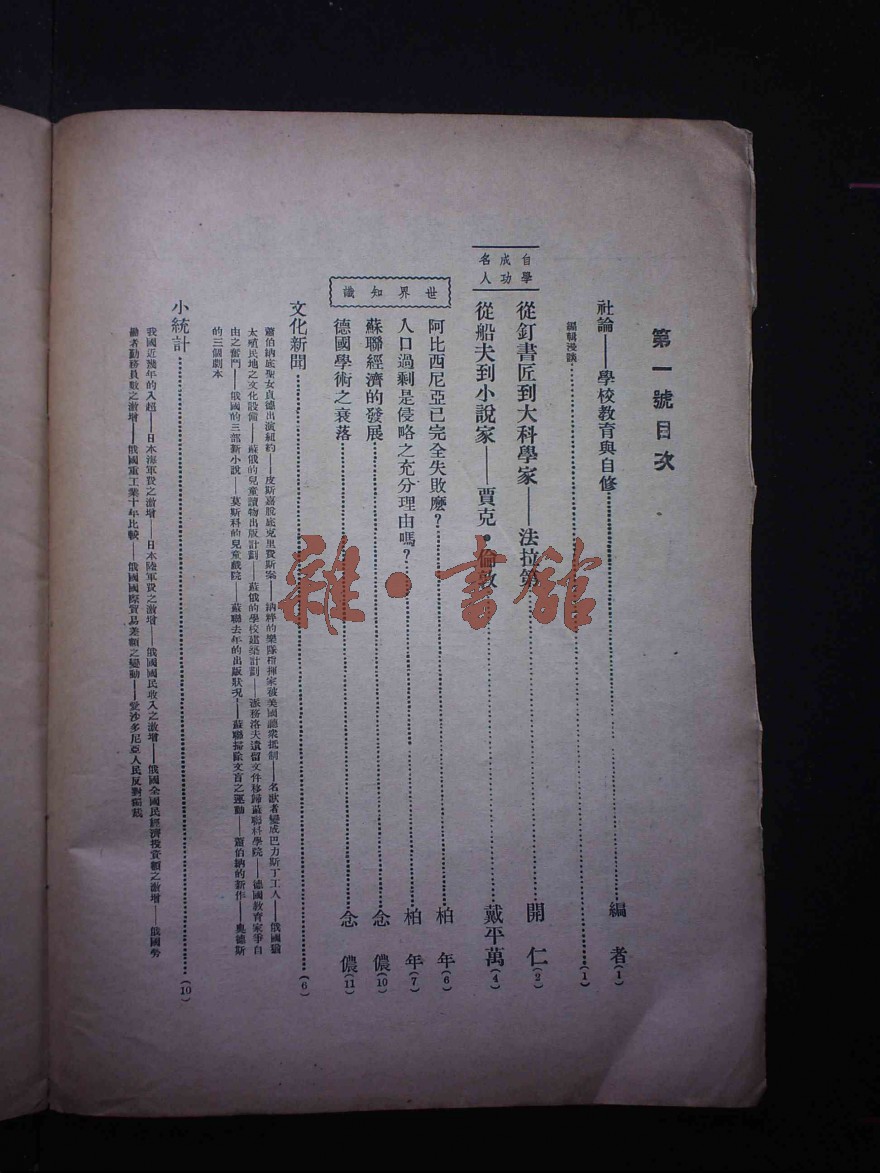 第一號目次
社論——學校教育與自修 編者(1)
編輯漫談 (1)
自學成功名人
從釘書匠到大科學家——法拉第 開仁(2)
從船夫到小說家——賈克●倫敦 戴平萬(4)
世界知識
阿比西尼亞已完全失敗麽? 柏年(6)
人口過剩是侵略之充分理由嗎? 柏年(7)
蘇聯經濟的發展 念儂(10)
德國學術之衰落 念儂(11)
文化新聞 (6)
蕭伯納底聖女貞德出演紐約——皮斯嘉脫底克里費斯案——納粹的樂隊指揮家被美國聽衆抵制——名猷者變成巴力斯丁工人——俄國猶
太殖民地之文化設備——蘇俄的兒童讀物出版計劃——蘇俄的學校建築計劃——派務洛夫遺留文件移歸蘇聯科學院——德國教育家爭自
由之奮鬥——俄國的三部新小說——莫斯科的兒童戲院——蘇聯去年的出版狀況——蘇聯掃除文盲之運動——蕭伯納的新作——奧德斯
的三個劇本
小統計 (10)
我國近幾年的入超——日本海軍費之激增——日本陸軍費之激增——俄國國民收入之激增——俄國全國民經濟投資額之激增——俄國勞
働者勤務員數之激增——俄國重工業十年比較——俄國國際貿易差額之變動——愛沙多尼亞人民反對獨裁
雜·書館